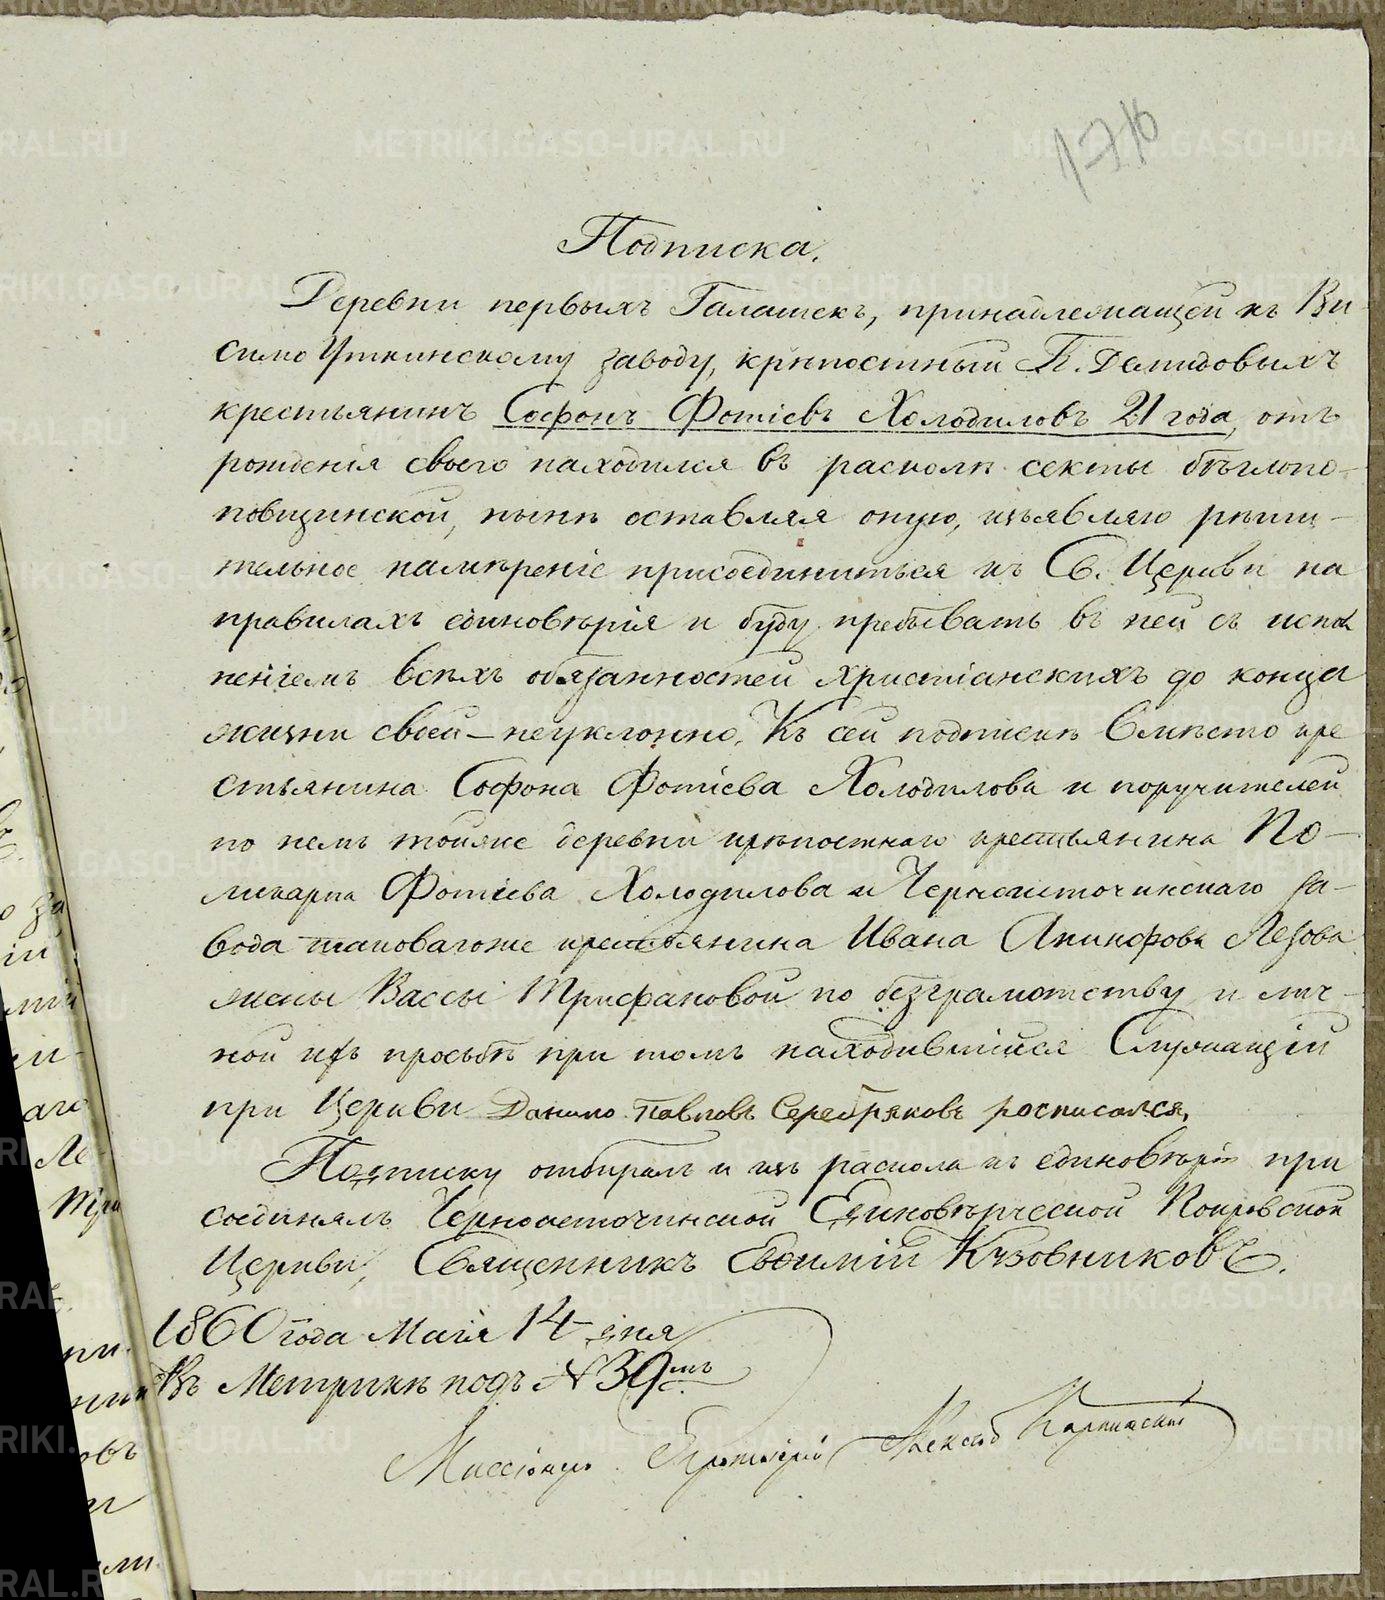 1716
Подписка.
Деревни первыхъ Галашекъ, принадлежащей къ Ви-
симо Уткинскому заводу, крѣпостный Г. Демидовыхъ
крестьянинъ Софонъ Фотіевъ Холодиловъ 21 года, отъ
рожденія своего находился въ расколѣ секты бѣглопо-
повщинской, нынѣ оставляя оную, изъявляю рѣши-
тельное намѣреніе присоединиться къ Св. Церкви на
правилахъ единовѣрія и буду пребывать въ ней съ испол
неніемъ всѣхъ обязанностей христіанскихъ до конца
жизни своей – неуклонно. Къ сей подпискѣ вмѣсто кре
стьянина Софона Фотіева Холодилова и поручителей
по немъ тойже деревни крѣпостнаго крестьянина По-
ликарпа Фотіева Холодилова и Черноисточинскаго за-
вода таковагоже крестьянина Ивана Акинфова Лезова
жены Вассы Трифановой по безграмотству и лич-
ной ихъ просьбѣ при томъ находившійся Служащій
при Церкви Данило Павловъ Серебряковъ росписался.
Подписку отбиралъ и изъ раскола къ единовѣрію при
соединялъ Черноисточинской Единовѣрческой Покровской
Церкви, Священникъ Евѳимій Кузовниковъ.
1860 года Маія 14 дня
Въ Метрикѣ подъ №39мъ
Миссіонеръ Протоіерей Александ Карпинскій
METRIKI.GASO-URAL.RU